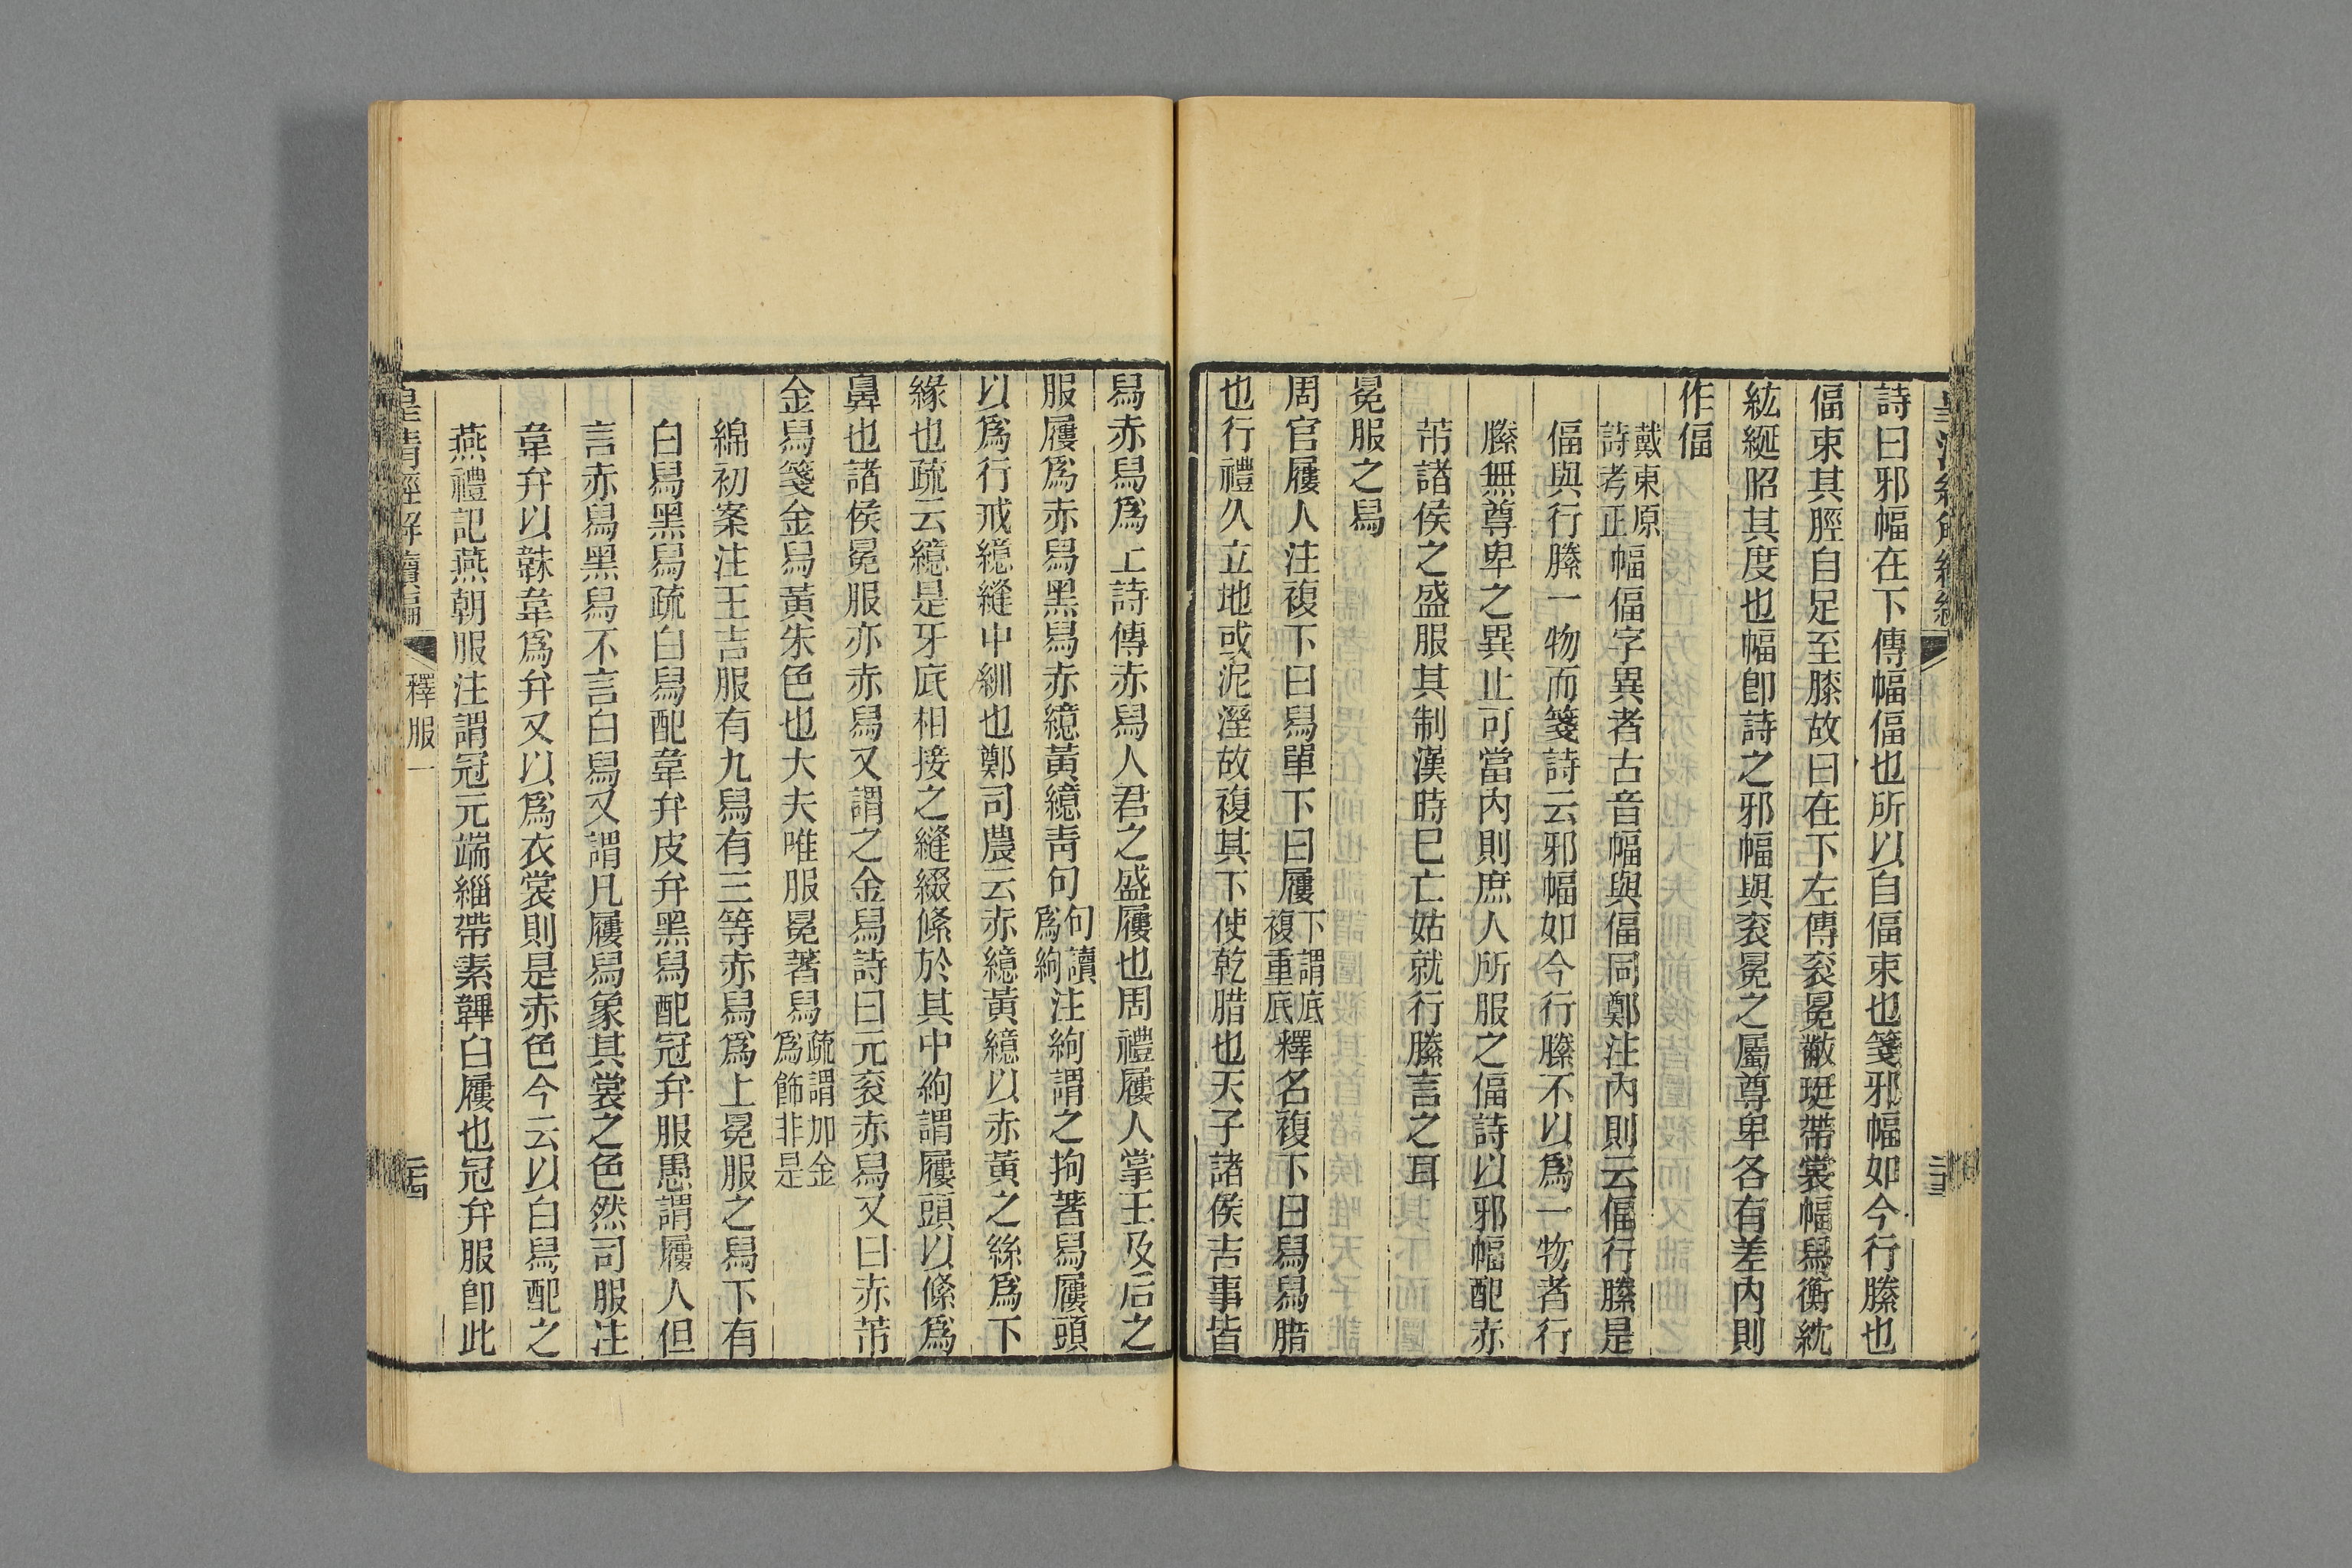 詩曰邪幅在下傳幅偪也所以自偪束也箋邪幅如今行縢也
偪束其脛自足至膝故曰在下左傳衮冕黻珽帶裳幅舄衡紞
紘綖昭其度也幅卽詩之邪幅與衮冕之屬尊卑各有差內則
作偪
戴東原詩考正幅偪字異者古音幅與偪同鄭注內則云偪行縢是
偪與行縢一物而箋詩云邪幅如今行縢不以爲一物者行
縢無尊卑之異止可當內則庶人所服之偪詩以邪幅配赤
芾諸侯之盛服其制漢時已亡姑就行縢言之耳
冕服之舄
周官屨人注複下曰舄單下曰屨下謂底複重底釋名複下曰舄舄腊
也行禮久立地或泥溼故複其下使乾腊也天子諸侯吉事皆
舄赤舄爲上詩傳赤舄人君之盛屨也周禮屨人掌王及后之
服屨爲赤舄黑舄赤繶黃繶靑句句讀爲絇注絇謂之拘著舄屨頭
以爲行戒繶縫中紃也鄭司農云赤繶黃繶以赤黃之絲爲下
緣也疏云繶是牙底相接之縫綴絛於其中絇謂屨頭以絛爲
鼻也諸侯冕服亦赤舄又謂之金舄詩曰元衮赤舄又曰赤芾
金舄箋金舄黃朱色也大夫唯服冕著舄疏謂加金爲飾非是
綿初案注王吉服有九舄有三等赤舄爲上冕服之舄下有
白舄黑舄疏白舄配韋弁皮弁黑舄配冠弁服愚謂屨人但
言赤舄黑舄不言白舄又謂凡屨舄象其裳之色然司服注
韋弁以韎韋爲弁又以爲衣裳則是赤色今云以白舄配之
燕禮記燕朝服注謂冠元端緇帶素韠白屨也冠弁服卽此
皇清經解續編
釋服一